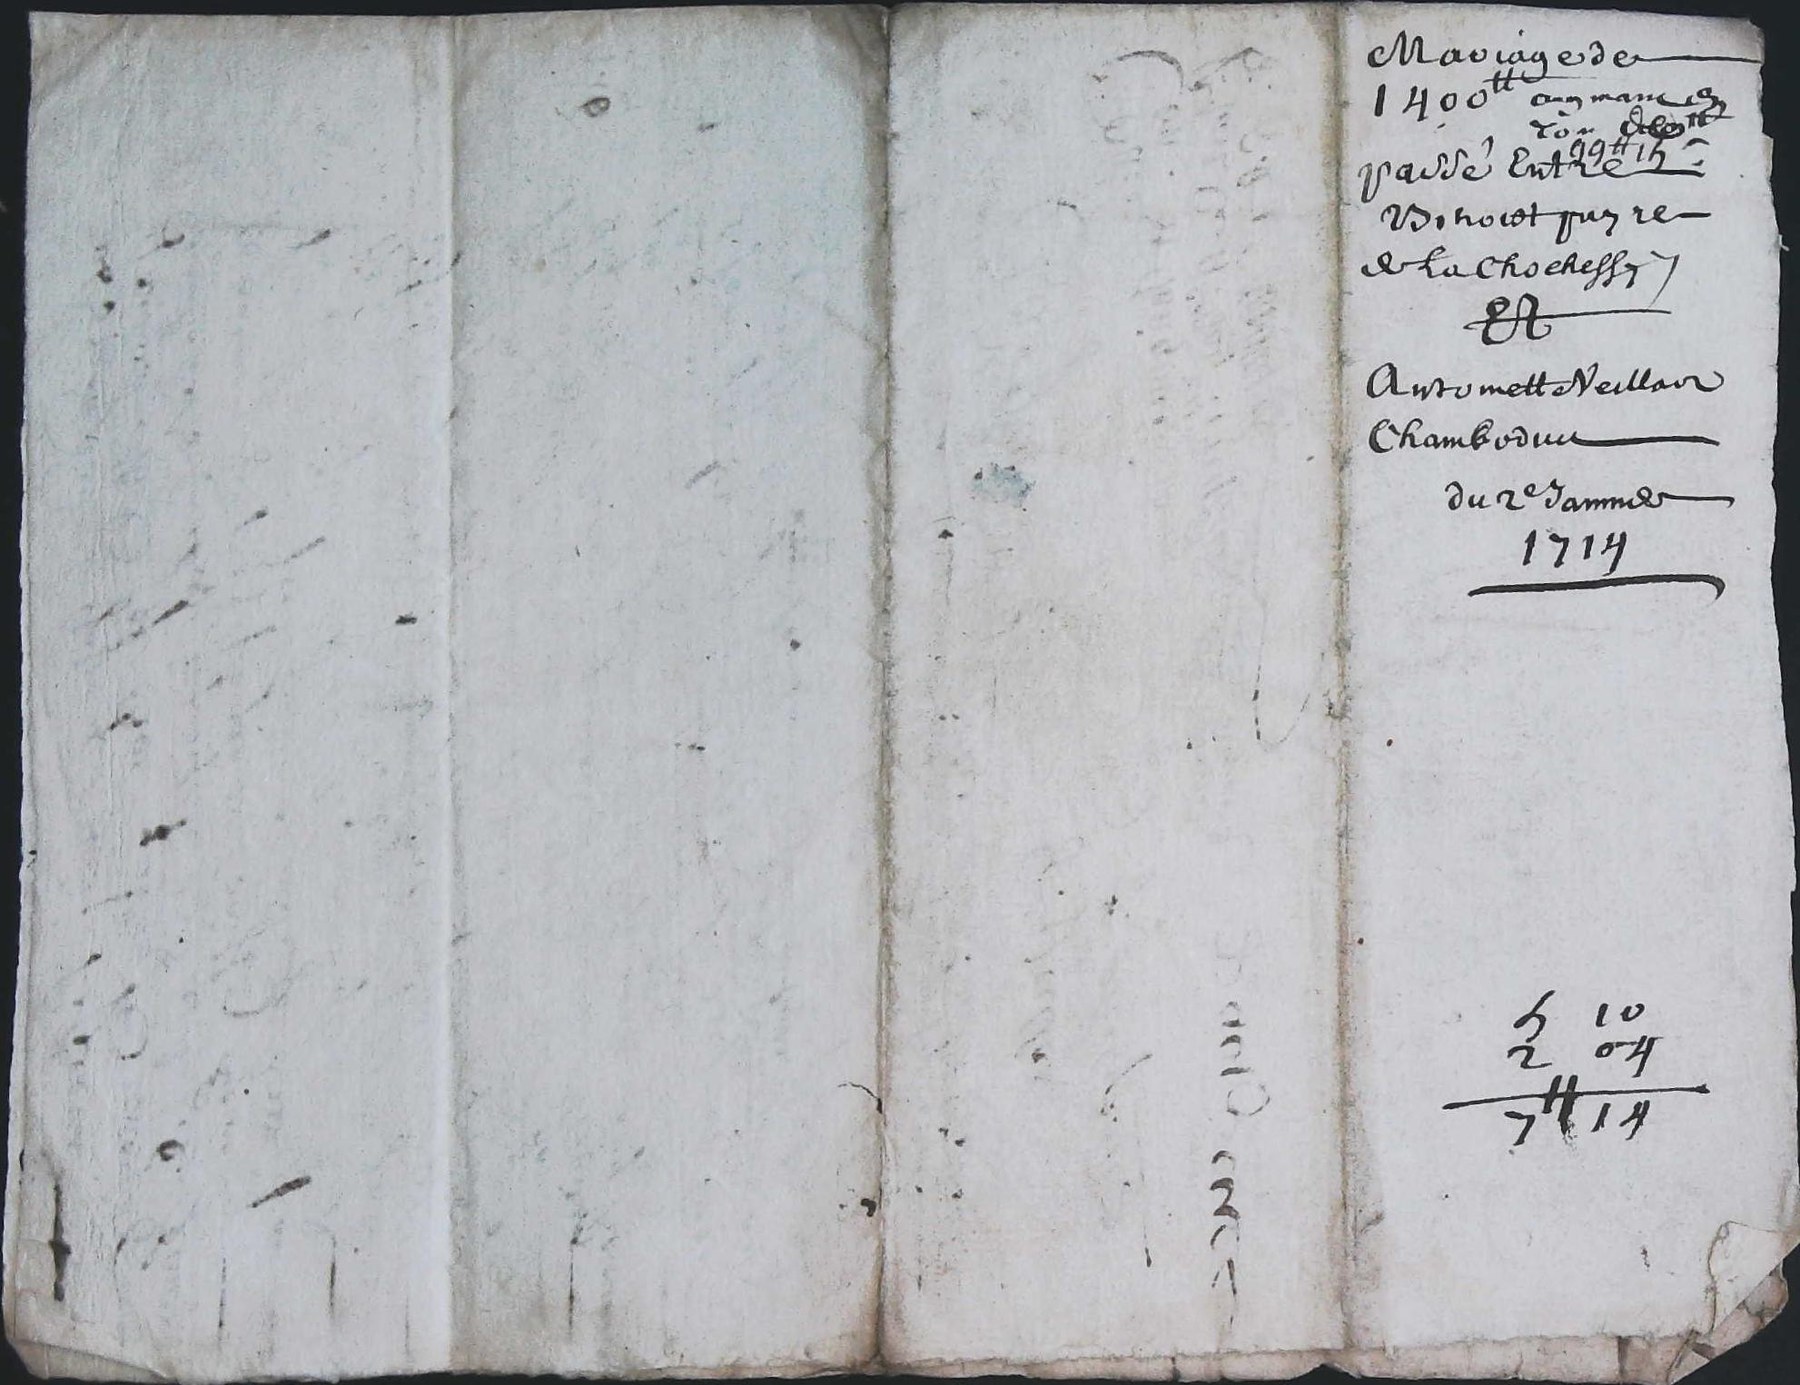 Mariage de
1400tt augmanta
tion
99tt 15 s
passé Entre
Benoist puyre
de La Chochessy
Et
Antoinette Veillaux
Chamboduc
du 2e Janvier
1714
5 10
2 04
7tt 14